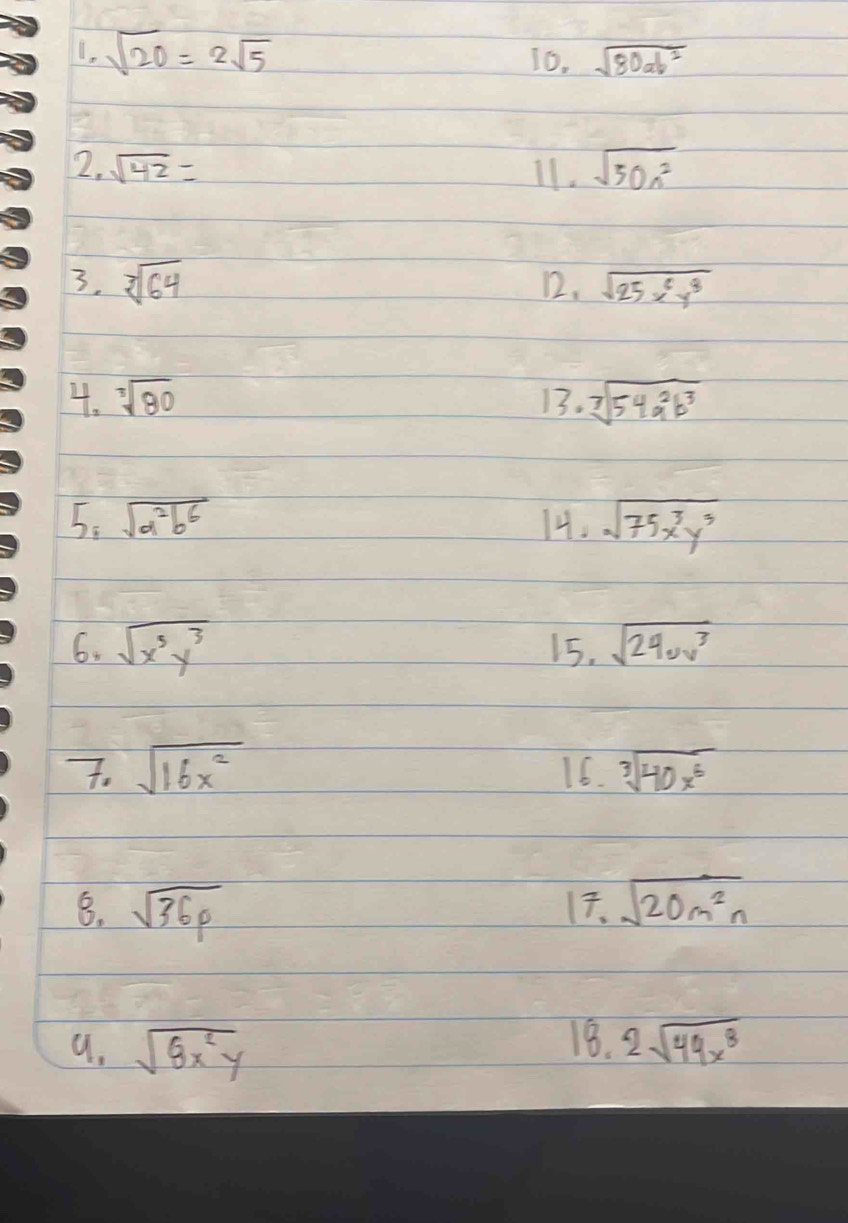 1. √20 = 2√5
2. √42 =
3. ∛64
4. ∛80
5. √a²b⁶
6. √x⁵y³
7. √16x²
8. √36p
9. √8x²y
10. √80ab²
11. √50n²
12. √25x⁶y⁸
13. ∛54a²b³
14. √75x³y⁵
15. √24uv³
16. ∛40x⁶
17. √20m²n
18. 2√49x⁸